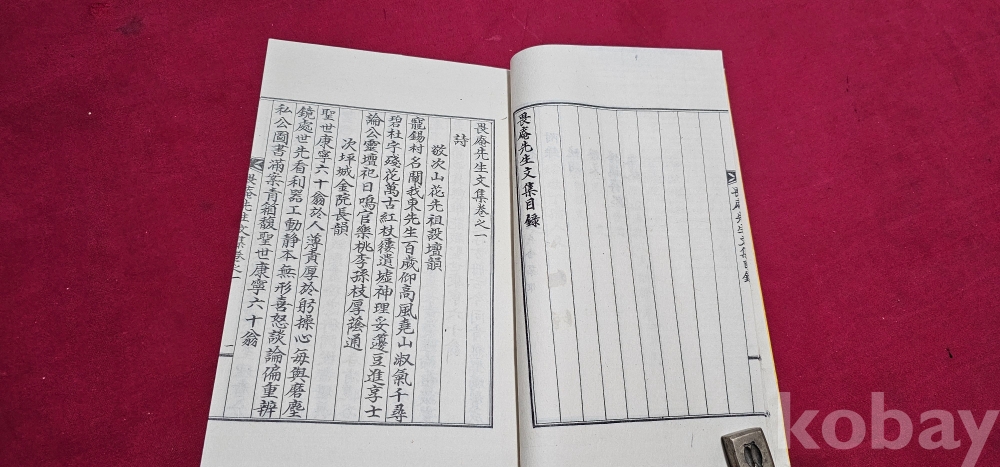 畏庵先生文集目錄
畏庵先生文集卷之一
詩
敬次山花先祖設壇韻
寵錫村名闡我東先生百歲仰高風堯山淑氣千尋
碧杜宇殘花萬古紅杖屨遺墟神理妥籩豆進享士
論公靈壇祀日鳴官樂桃李孫枝厚蔭通
次坪城金院長韻
聖世康寧六十翁於人薄責厚於躬操心每與磨塵
鏡處世先看利器工動靜本無形喜怒談論偏重辨
私公圖書滿案青緗馥聖世康寧六十翁
畏庵先生文集卷之一
一
kobay